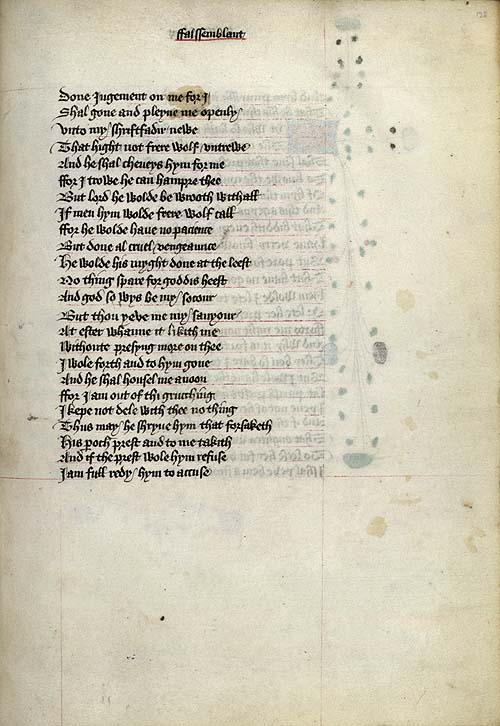 ffalssemblant
Done Jugement on me for I
Shal gone and pleyne me openly
Vnto my shriftfadir newe
That hight not frere wolf vntrewe
And he shal cheueys hym for me
ffor I trowe he can hampre thee
But lord he wolde be wrooth withall
If men hym wolde frere wolf call
ffor he wolde haue no pacience
But done al cruel vengeaunce
He wolde his myght done at the leest
No thing spare for goddis heest
And god so wys be my socour
But thou yeve me my sauyour
At ester whanne it likith me
Withoute presyng more on thee
I wole forth and to hym gone
And he shal housel me anoon
ffor I am out of thi grucching
I kepe not dele with thee no thing
Thus may he shryue hym that forsaketh
His poch prest and to me takith
And if the prest wole hym refuse
I am full redy hym to accuse